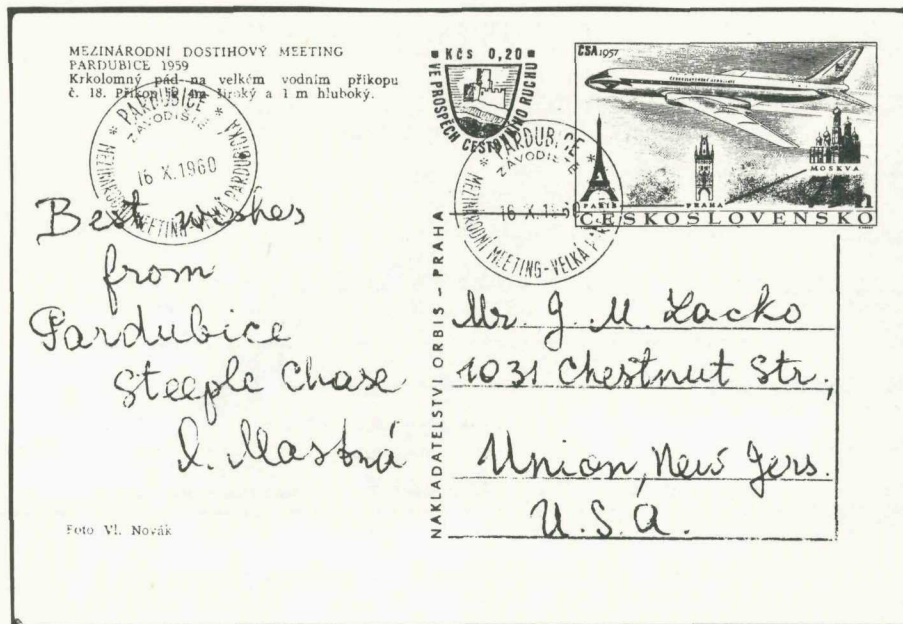 MEZINÁRODNÍ DOSTIHOVÝ MEETING
PARDUBICE 1959
Krkolomný pád na velkém vodním příkopu
č. 18. Příkop je 4m široký a 1 m hluboký.
PARDUBICE
ZÁVODIŠTĚ
16 X. 1960
MEZINÁRODNÍ MEETING - VELKÁ PARDUBICKÁ
Best wishes
from
Pardubice
Steeple Chase
Mastná
Foto Vl. Novák
NAKLADATELSTVÍ ORBIS - PRAHA
Kčs 0,20
VE PROSPĚCH CESTOVNÍHO RUCHU
PARDUBICE
ZÁVODIŠTĚ
16 X. 1960
MEZINÁRODNÍ MEETING - VELKÁ
ČSA 1957
PARIS
PRAHA
MOSKVA
ČESKOSLOVENSKO
Mr. J. M. Lacko
1031 Chestnut Str.,
Union, New Jers.
U.S.A.